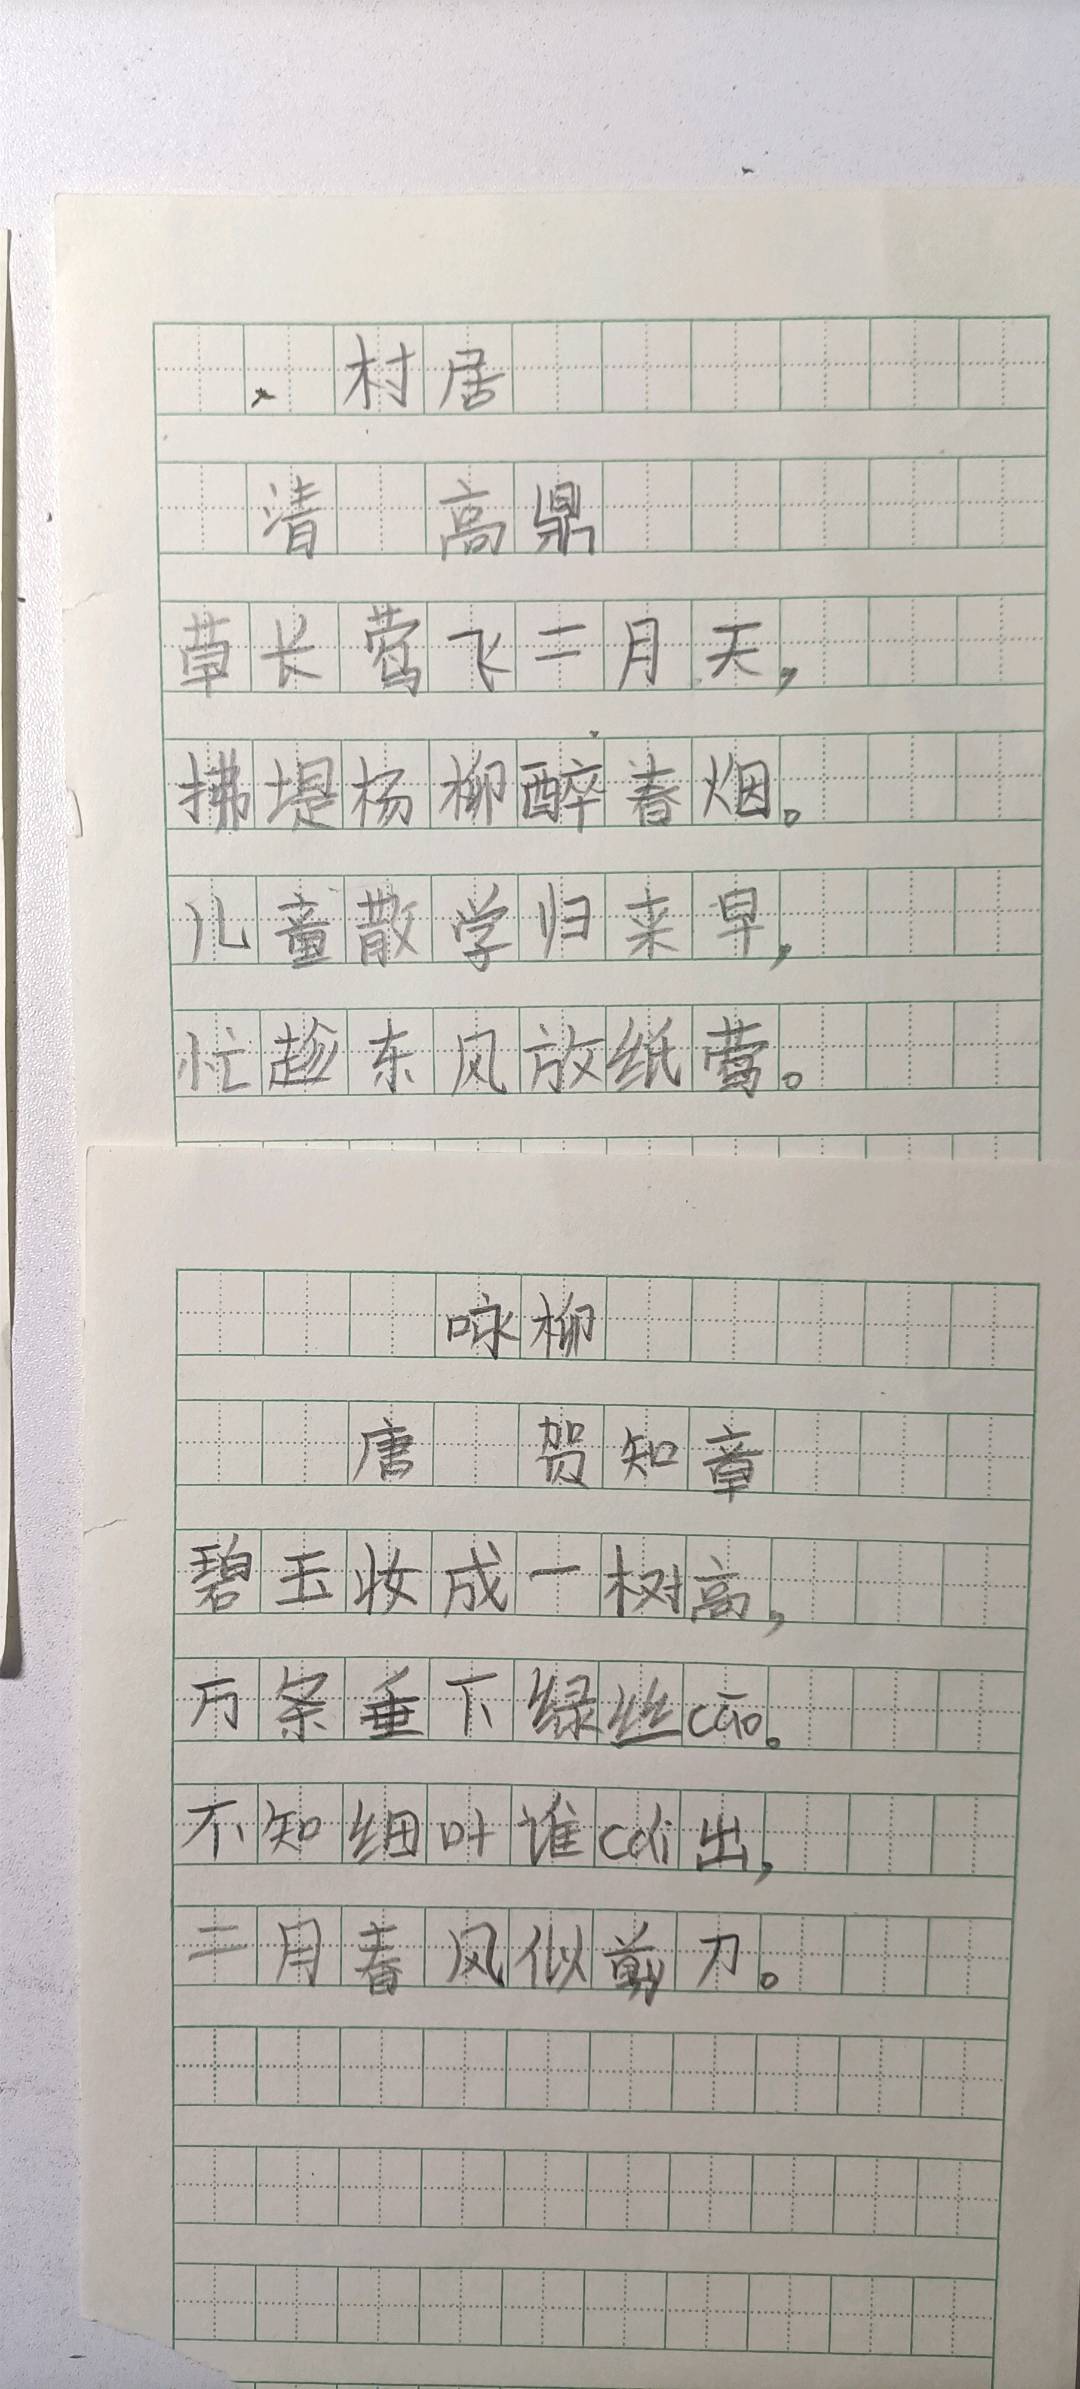 村居
清 高鼎
草长莺飞二月天，
拂堤杨柳醉春烟。
儿童散学归来早，
忙趁东风放纸莺。
咏柳
唐 贺知章
碧玉妆成一树高，
万条垂下绿丝cāo。
不知细叶谁cái出，
二月春风似剪刀。